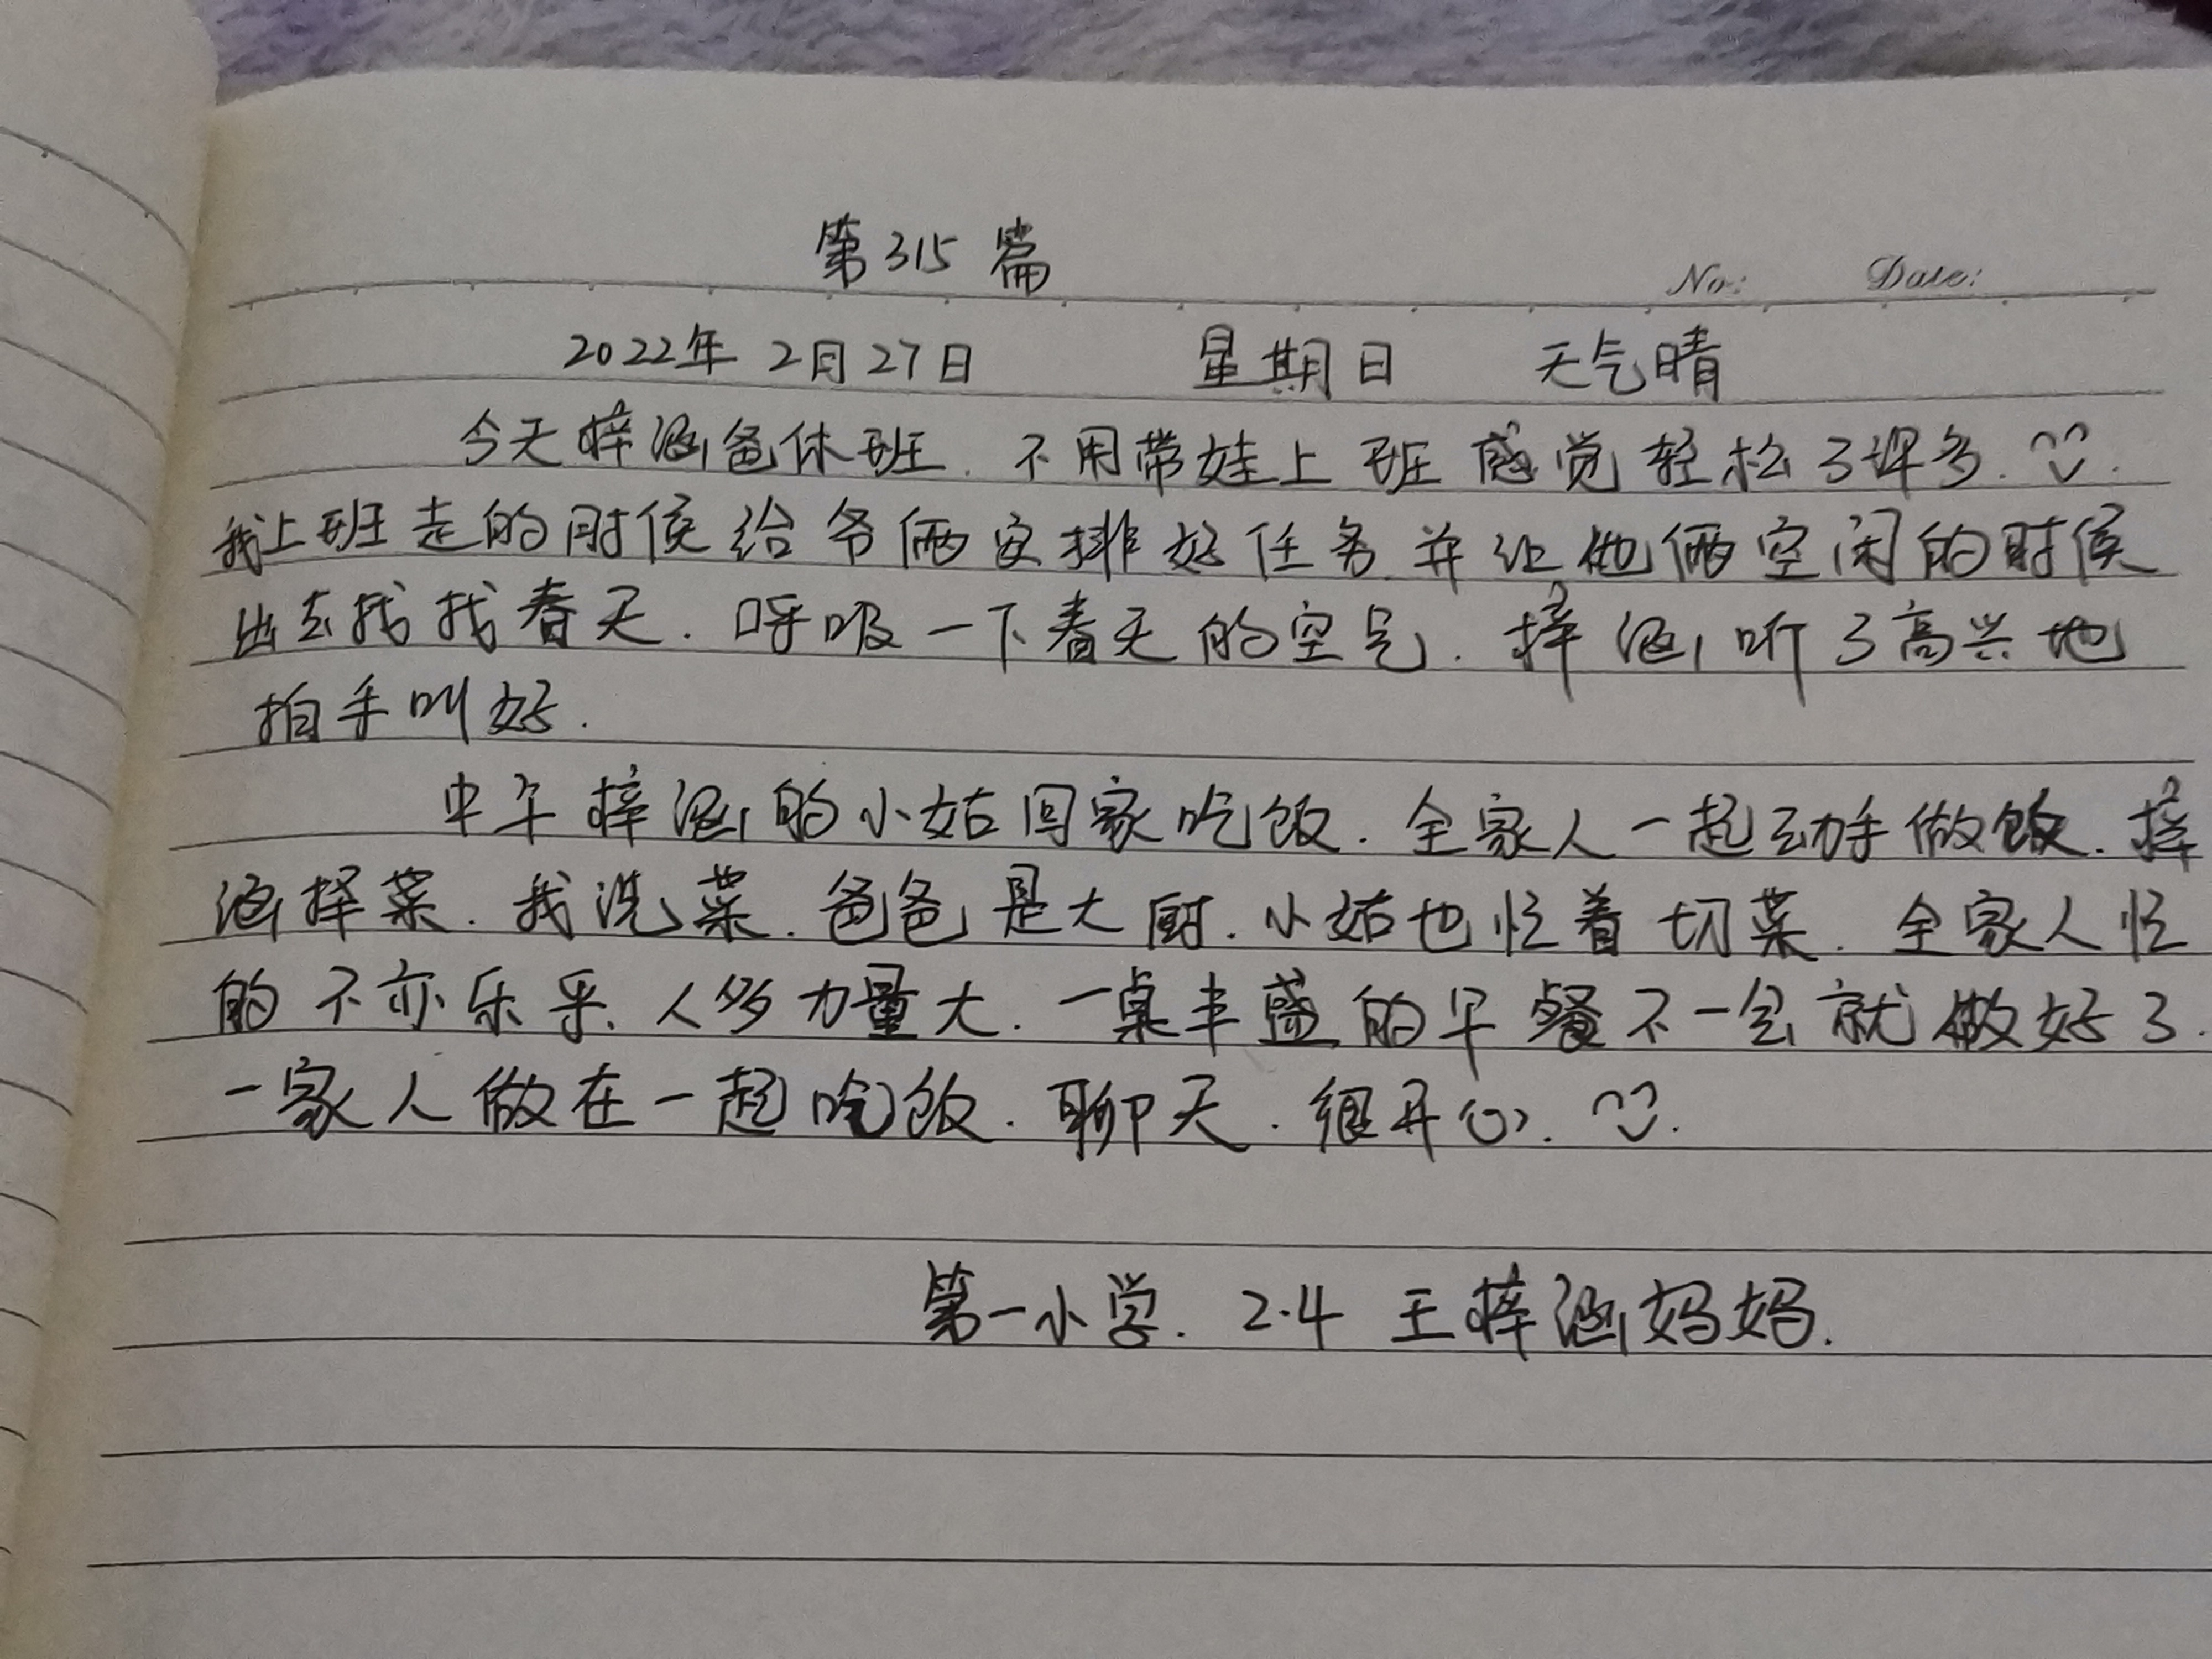 第315篇
No: Date:
2022年2月27日 星期日 天气晴
今天梓涵爸休班.不用带娃上班感觉轻松了许多.
我上班走的时候给爷俩安排好任务.并让他俩空闲的时候
出去找找春天.呼吸一下春天的空气.梓涵听了高兴地
拍手叫好.
中午梓涵的小姑回家吃饭.全家人一起动手做饭.梓
涵择菜.我洗菜.爸爸是大厨.小姑也忙着切菜.全家人忙
的不亦乐乎.人多力量大.一桌丰盛的午餐不一会就做好了.
一家人做在一起吃饭.聊天.很开心.
第一小学.2.4 王梓涵妈妈.